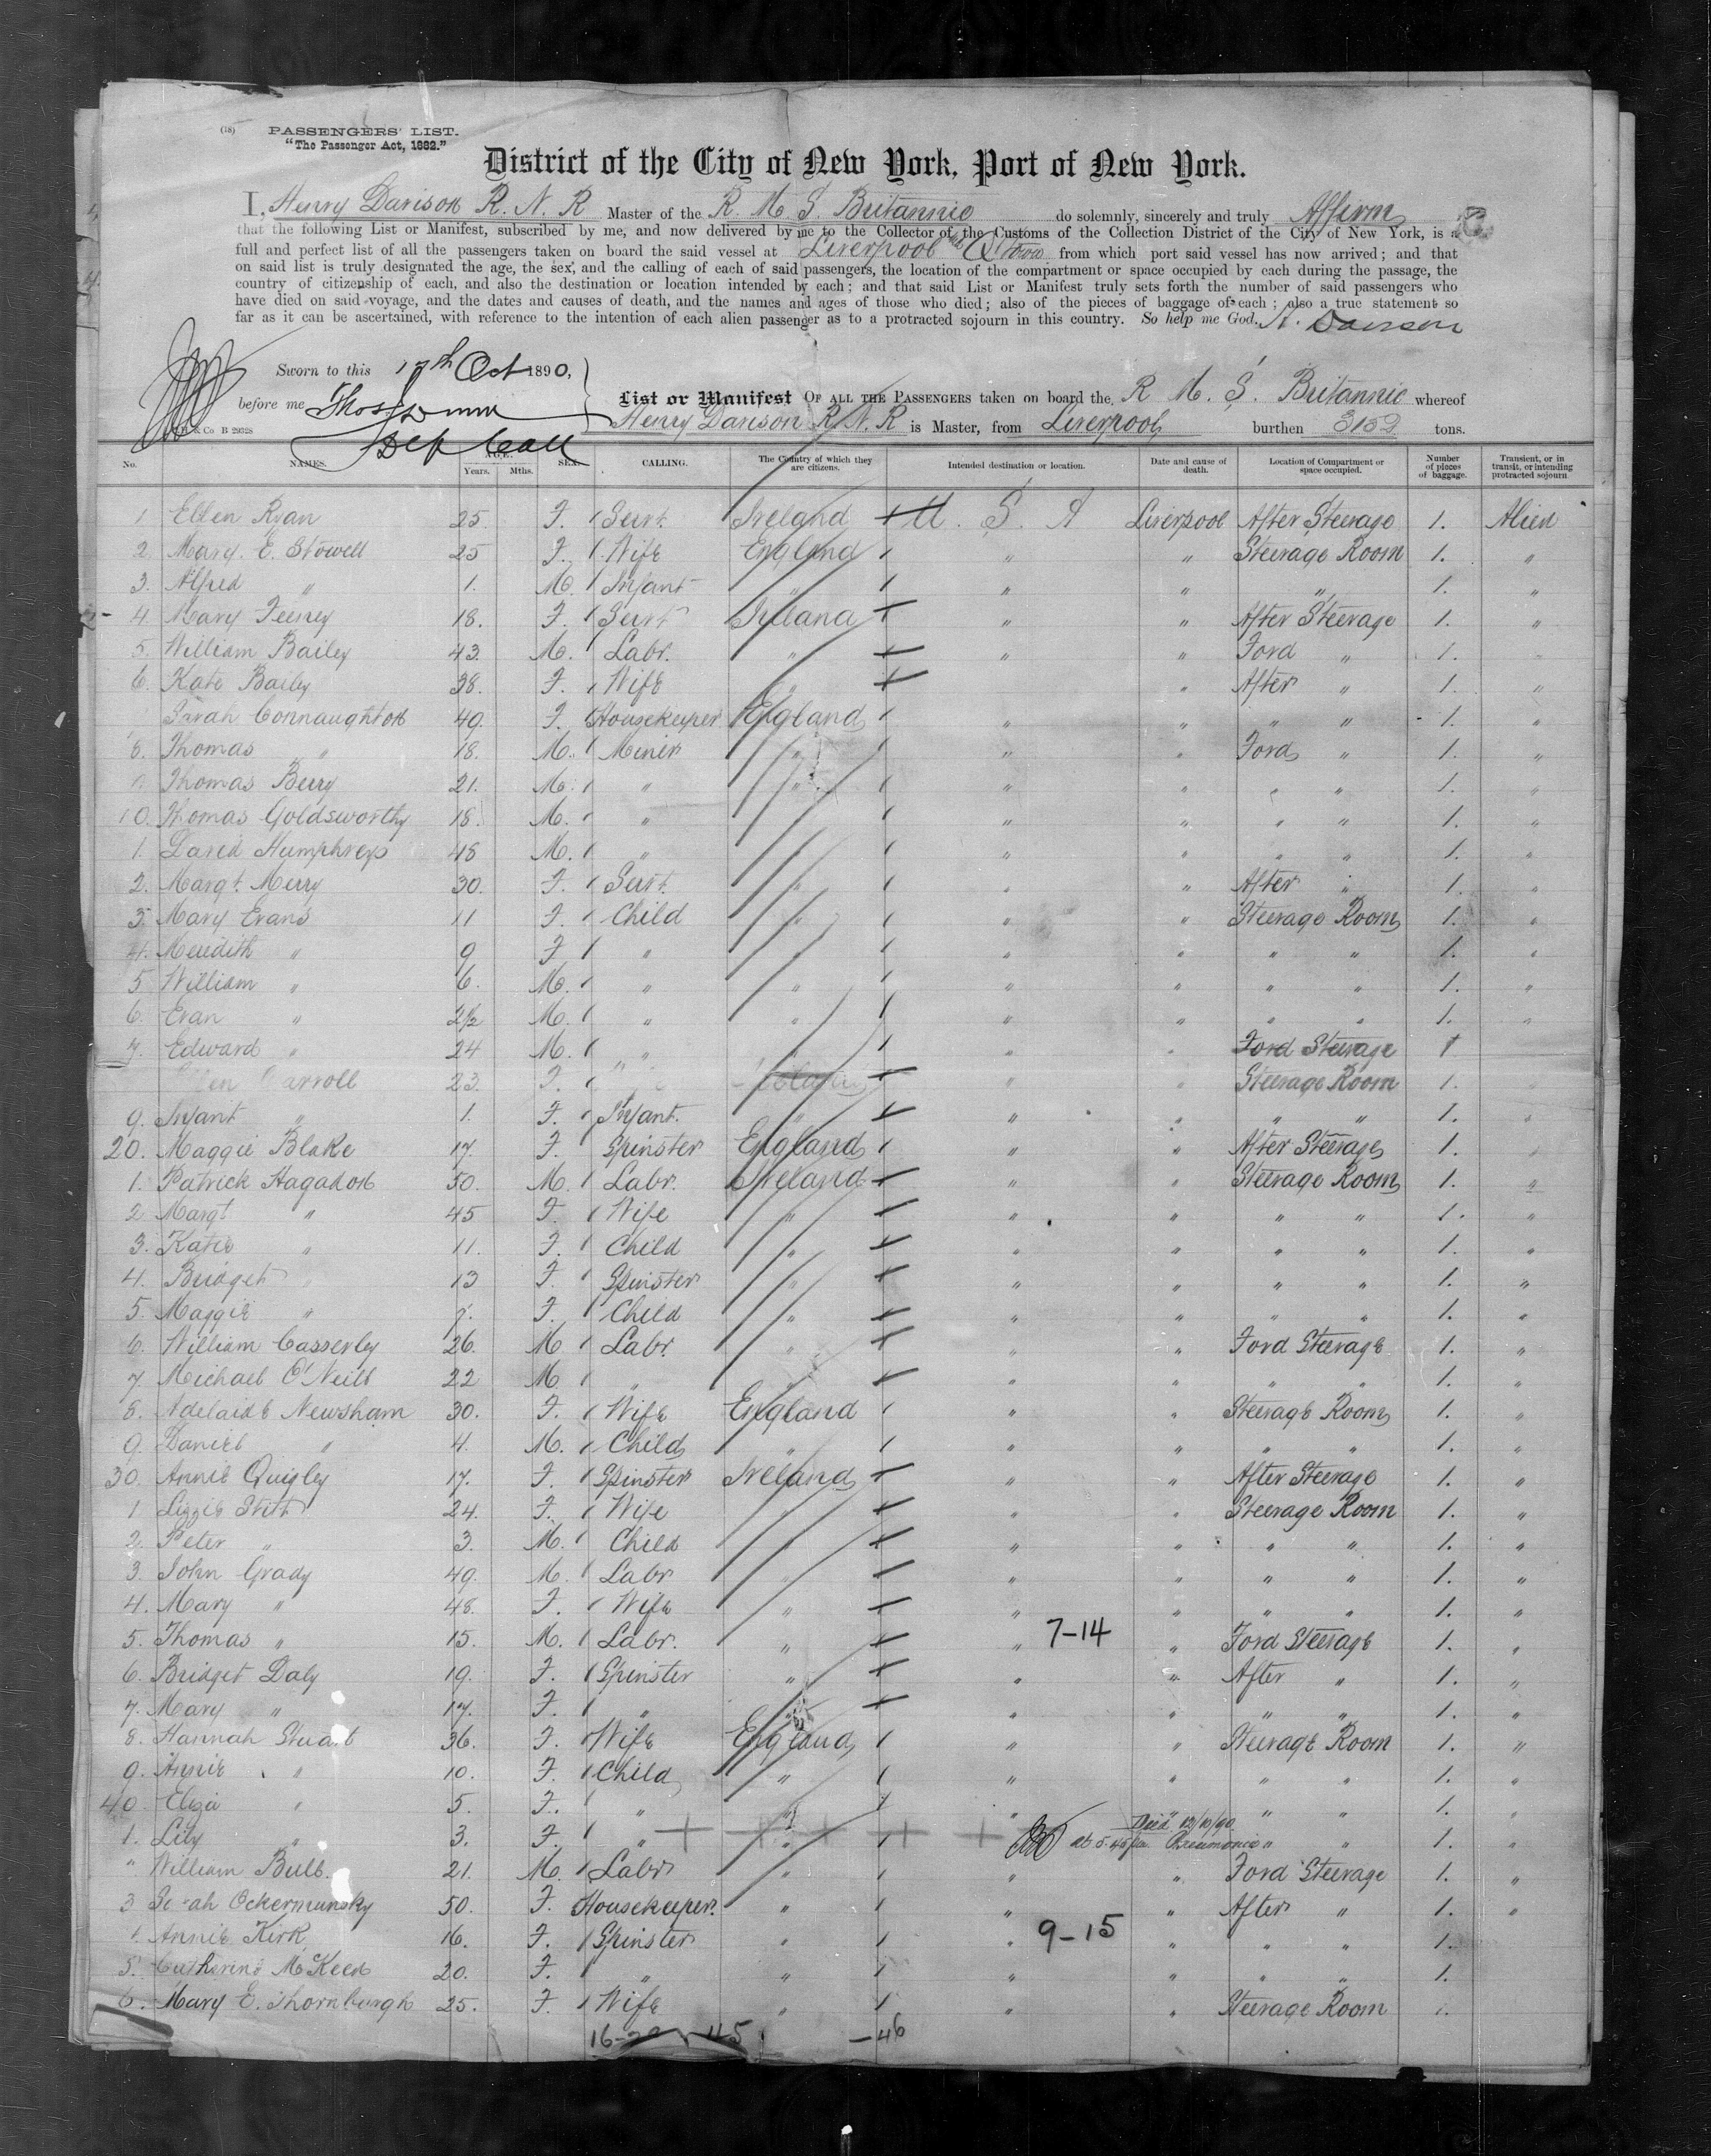 (18) PASSENGERS' LIST.
"The Passenger Act, 1882."
District of the City of New York, Port of New York.
I, Henry Davison R. N. R Master of the R. M. S. Britannic do solemnly, sincerely and truly Affirm
that the following List or Manifest, subscribed by me, and now delivered by me to the Collector of the Customs of the Collection District of the City of New York, is a
full and perfect list of all the passengers taken on board the said vessel at Liverpool Q'town from which port said vessel has now arrived; and that
on said list is truly designated the age, the sex, and the calling of each of said passengers, the location of the compartment or space occupied by each during the passage, the
country of citizenship of each, and also the destination or location intended by each; and that said List or Manifest truly sets forth the number of said passengers who
have died on said voyage, and the dates and causes of death, and the names and ages of those who died; also of the pieces of baggage of each; also a true statement so
far as it can be ascertained, with reference to the intention of each alien passenger as to a protracted sojourn in this country. So help me God. H. Davison
Sworn to this 17th Oct 1890,
before me Thos Dunn
Dep Coll
& Co B 29328
List or Manifest OF ALL THE PASSENGERS taken on board the R M. S. Britannic whereof
Henry Davison R. N. R is Master, from Liverpool burthen 3152 tons.
No. NAMES. AGE. Years. Mths. SEX. CALLING. The Country of which they are citizens. Intended destination or location. Date and cause of death. Location of Compartment or space occupied. Number of pieces of baggage. Transient, or in transit, or intending protracted sojourn
1 Ellen Ryan 25. F. Servt. Ireland U. S. A Liverpool After Steerage 1. Alien
2. Mary. E. Stowell 25 F. Wife England " " Steerage Room 1. "
3. Alfred " 1. M. Infant " " " " 1. "
4. Mary Feeney 18. F. Servt Ireland " " After Steerage 1. "
5. William Bailey 43. M. Labr. " " " Ford " 1. "
6. Kate Bailey 38. F. Wife " " After " 1. "
Sarah Connaughton 40. F. Housekeeper England " " " " 1. "
8. Thomas " 18. M. Miner " " " Ford " 1. "
Thomas Berry 21. M. " " " " " " 1. "
10. Thomas Goldsworthy 18. M. " " " " " 1. "
1. David Humphreys 48 M. " " " " " 1. "
2. Margt. Merry 30. F. Servt. " " " After " 1. "
3. Mary Evans 11 F. Child " " " Steerage Room 1. "
4. Meredith " 9 F " " " " " " 1. "
5 William " 6. M. " " " " " " 1. "
6. Evan " 2½ M. " " " " " " 1. "
7. Edward " 24 M. " " " Ford Steerage 1
Carroll 23. F. " " " Steerage Room 1.
9. Infant " 1. F. Infant. " " " " " 1. "
20. Maggie Blake 17. F. Spinster England " " After Steerage 1.
1. Patrick Hagadon 50. M. Labr. Ireland " " Steerage Room 1. "
2 Margt " 45 F. Wife " " " " " 1. "
3. Katie " 11. F. Child " " " " " 1. "
4. Bridget " 13 F. Spinster " " " " " 1. "
5. Maggie " 7. F. Child " " " " " 1. "
6. William Casserley 26. M Labr. " " " Ford Steerage 1. "
7. Michael O'Neill 22 M " " " " " " 1. "
8. Adelaide Newsham 30. F. Wife England " " Steerage Room 1. "
9. Daniel " 4. M. Child " " " " " 1. "
30. Annie Quigley 17. F. Spinster Ireland " " After Steerage 1. "
1 Lizzie Stitt 24. F. Wife " " " Steerage Room 1. "
2. Peter " 3. M. Child " " " " " 1. "
3. John Grady 49. M. Labr " " " " " 1. "
4. Mary " 48. F. Wife " " " " " 1. "
5. Thomas " 15. M. Labr. " " 7-14 " Ford Steerage 1. "
6. Bridget Daly 19. F. Spinster " " " After " 1. "
7. Mary " 17. F. " " " " " " 1. "
8. Hannah Stuart 36. F. Wife England " " Steerage Room 1. "
9. Annie " 10. F. Child " " " " " 1. "
40. Eliza " 5. F. " " " " " " 1. "
1. Lily " 3. F. " " at 5.45 pm Died 12/10/90 Pneumonia " " 1. "
" William Bull. 21. M. Labr " " " Ford Steerage 1. "
3 Sarah Ockermunsky 50. F. Housekeeper. " " " After " 1. "
4. Annie Kirk 16. F. Spinster " " 9-15 " " " 1.
5. Catherine McKeed 20. F. " " " " " " 1.
6. Mary E. Thornburgh 25. F. Wife " " " Steerage Room 1.
45 -46